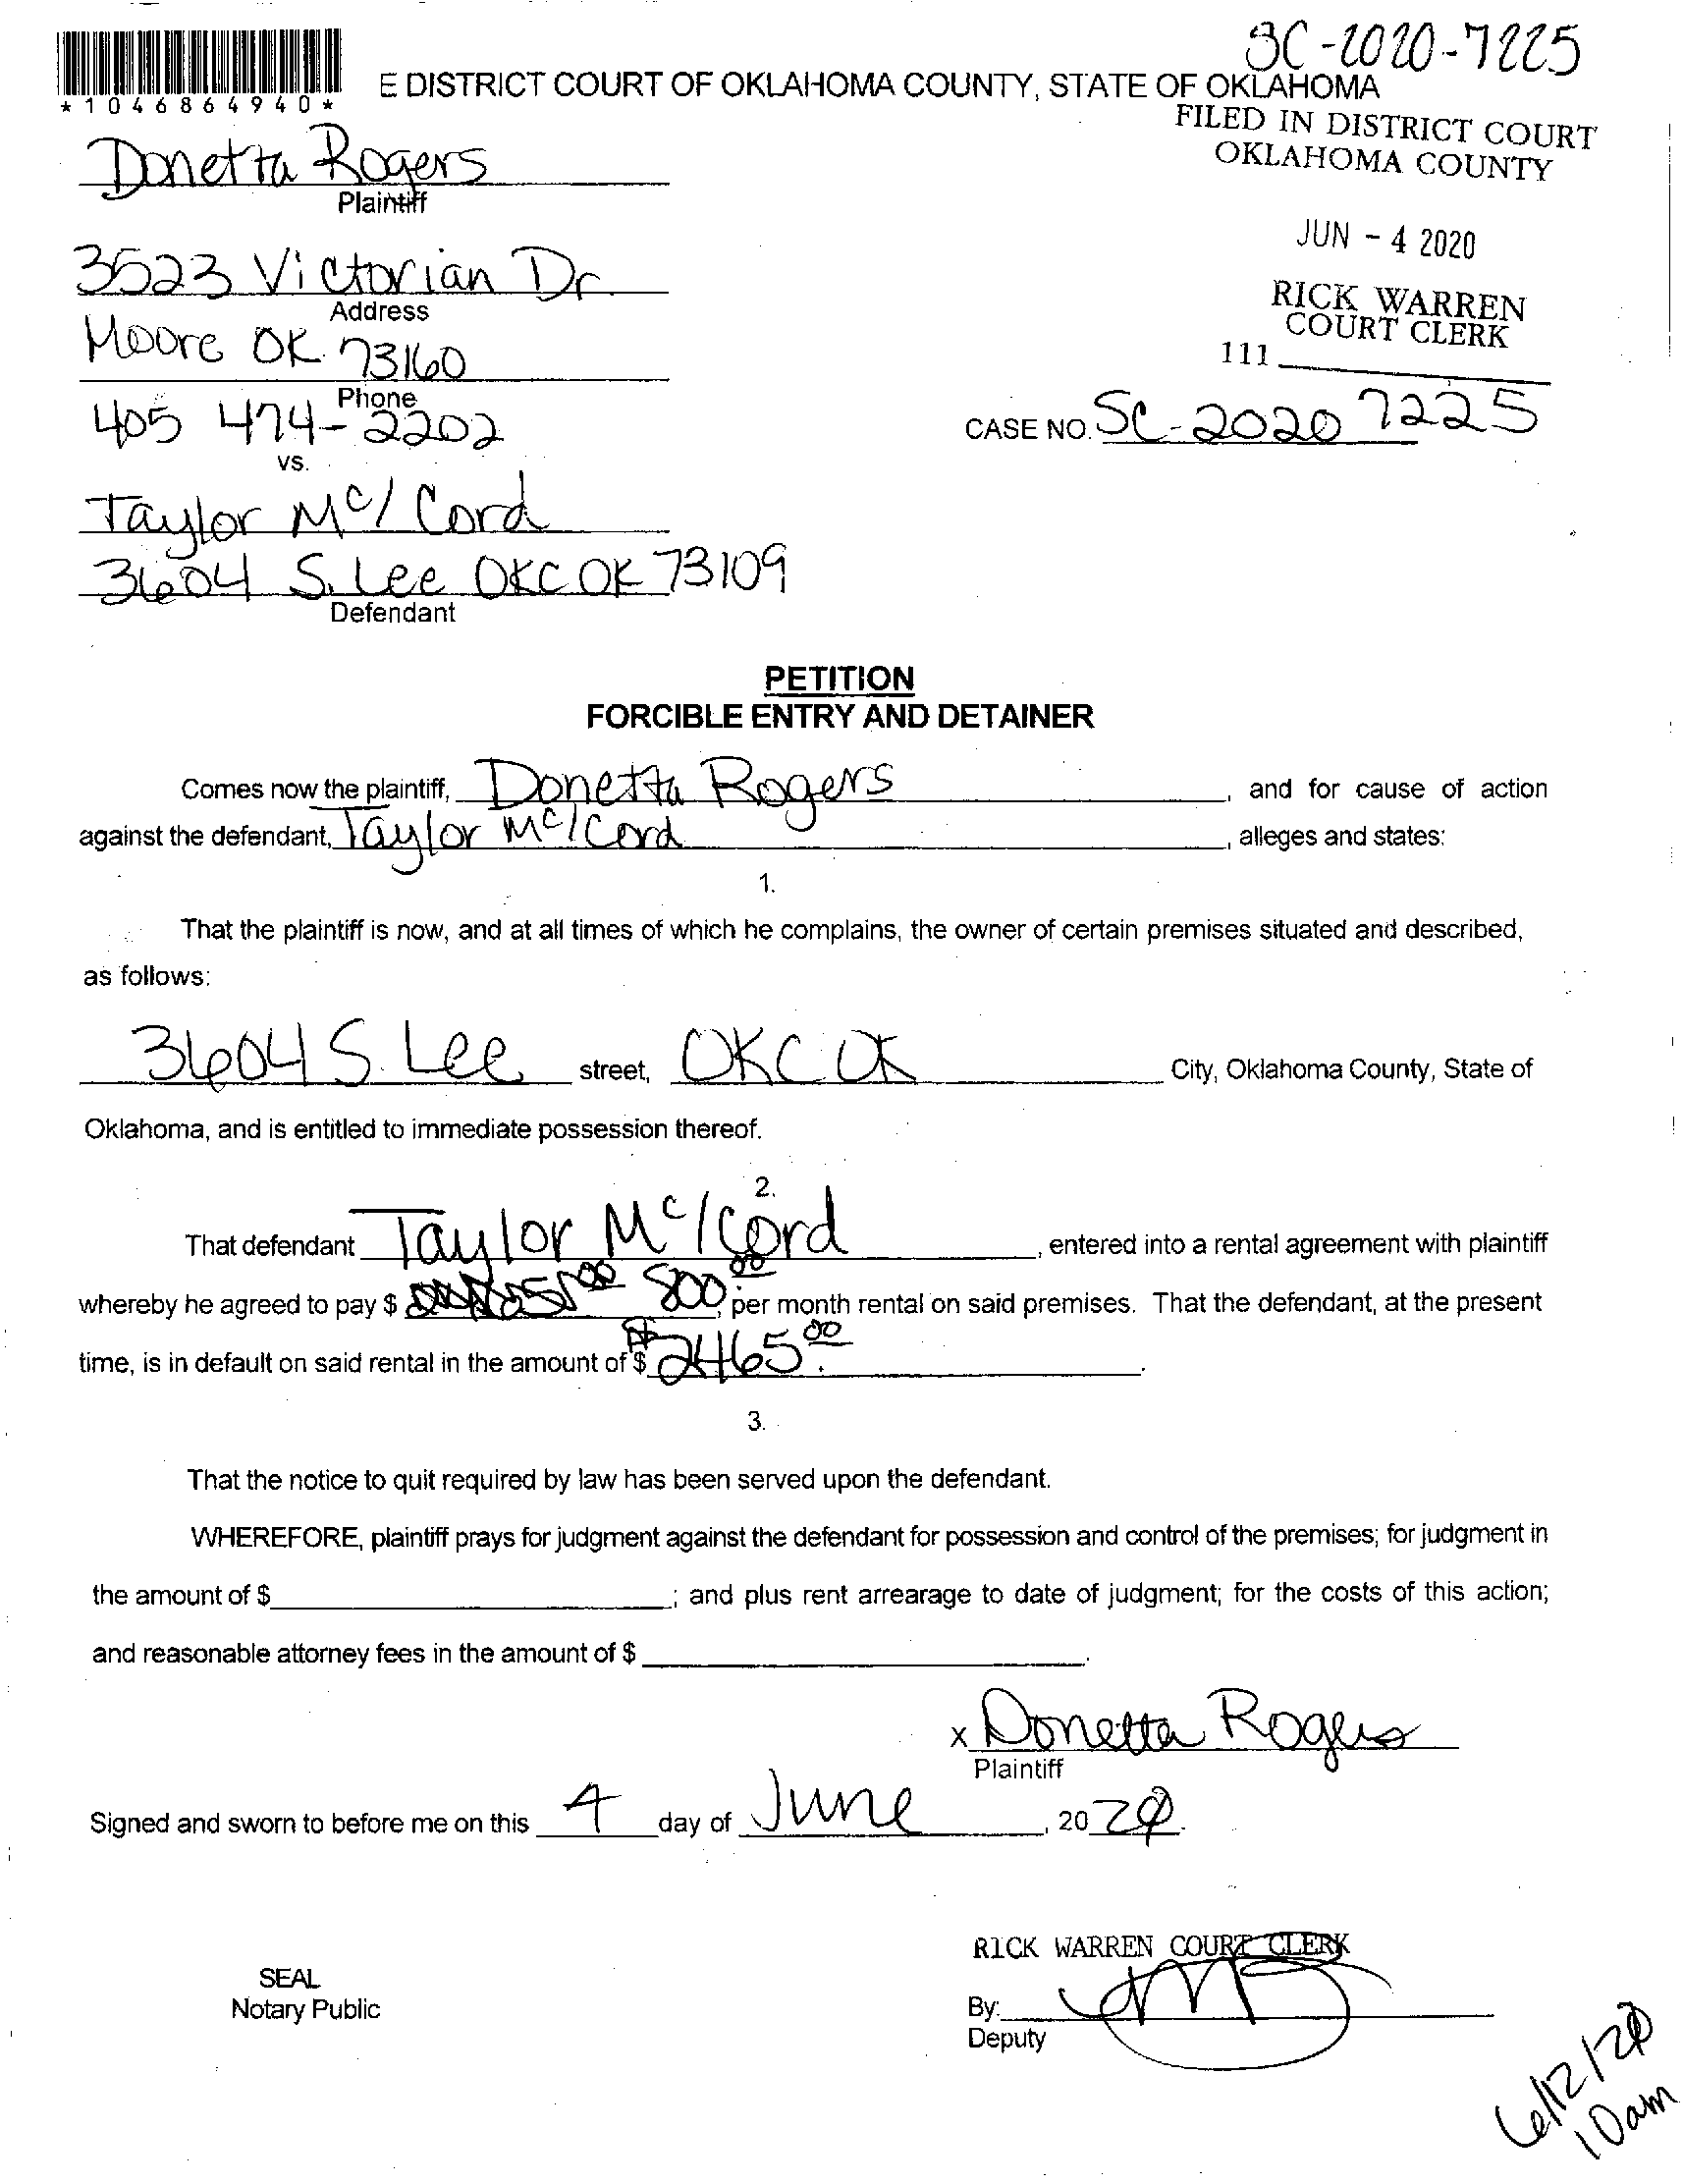 SC-2020-7225
*1046864940*
E DISTRICT COURT OF OKLAHOMA COUNTY, STATE OF OKLAHOMA
FILED IN DISTRICT COURT
OKLAHOMA COUNTY
Donetta Rogers
Plaintiff
JUN - 4 2020
3523 Victorian Dr.
Address
RICK WARREN
COURT CLERK
Moore OK 73160
111
Phone
405 474-2202
CASE NO. SC-2020 7225
vs.
Taylor Mc/Cord
3604 S. Lee OKC OK 73109
Defendant
PETITION
FORCIBLE ENTRY AND DETAINER
Comes now the plaintiff, Donetta Rogers, and for cause of action
against the defendant, Taylor Mc/Cord, alleges and states:
1.
That the plaintiff is now, and at all times of which he complains, the owner of certain premises situated and described,
as follows:
3604 S. Lee street, OKC OK City, Oklahoma County, State of
Oklahoma, and is entitled to immediate possession thereof.
2.
That defendant Taylor Mc/Cord, entered into a rental agreement with plaintiff
whereby he agreed to pay $ 800.00, per month rental on said premises. That the defendant, at the present
time, is in default on said rental in the amount of $ $2465.00.
3.
That the notice to quit required by law has been served upon the defendant.
WHEREFORE, plaintiff prays for judgment against the defendant for possession and control of the premises; for judgment in
the amount of $ ; and plus rent arrearage to date of judgment; for the costs of this action;
and reasonable attorney fees in the amount of $ .
x Donetta Rogers
Plaintiff
Signed and sworn to before me on this 4 day of June, 2020.
RICK WARREN COURT CLERK
SEAL
Notary Public
By:
Deputy
6/12/20
10am